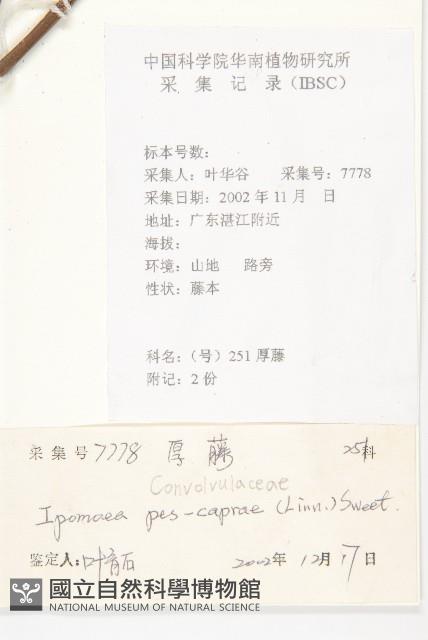 中国科学院华南植物研究所
采 集 记 录（IBSC）
标本号数：
采集人：叶华谷 采集号：7778
采集日期：2002 年 11 月 日
地址：广东湛江附近
海拔：
环境：山地 路旁
性状：藤本
科名：（号）251 厚藤
附记：2 份
采 集 号 7778 厚 藤 251 科
Convolvulaceae
Ipomaea pes-caprae (Linn.) Sweet.
鉴定人：叶育石 2002 年 12 月 17 日
國立自然科學博物館
NATIONAL MUSEUM OF NATURAL SCIENCE